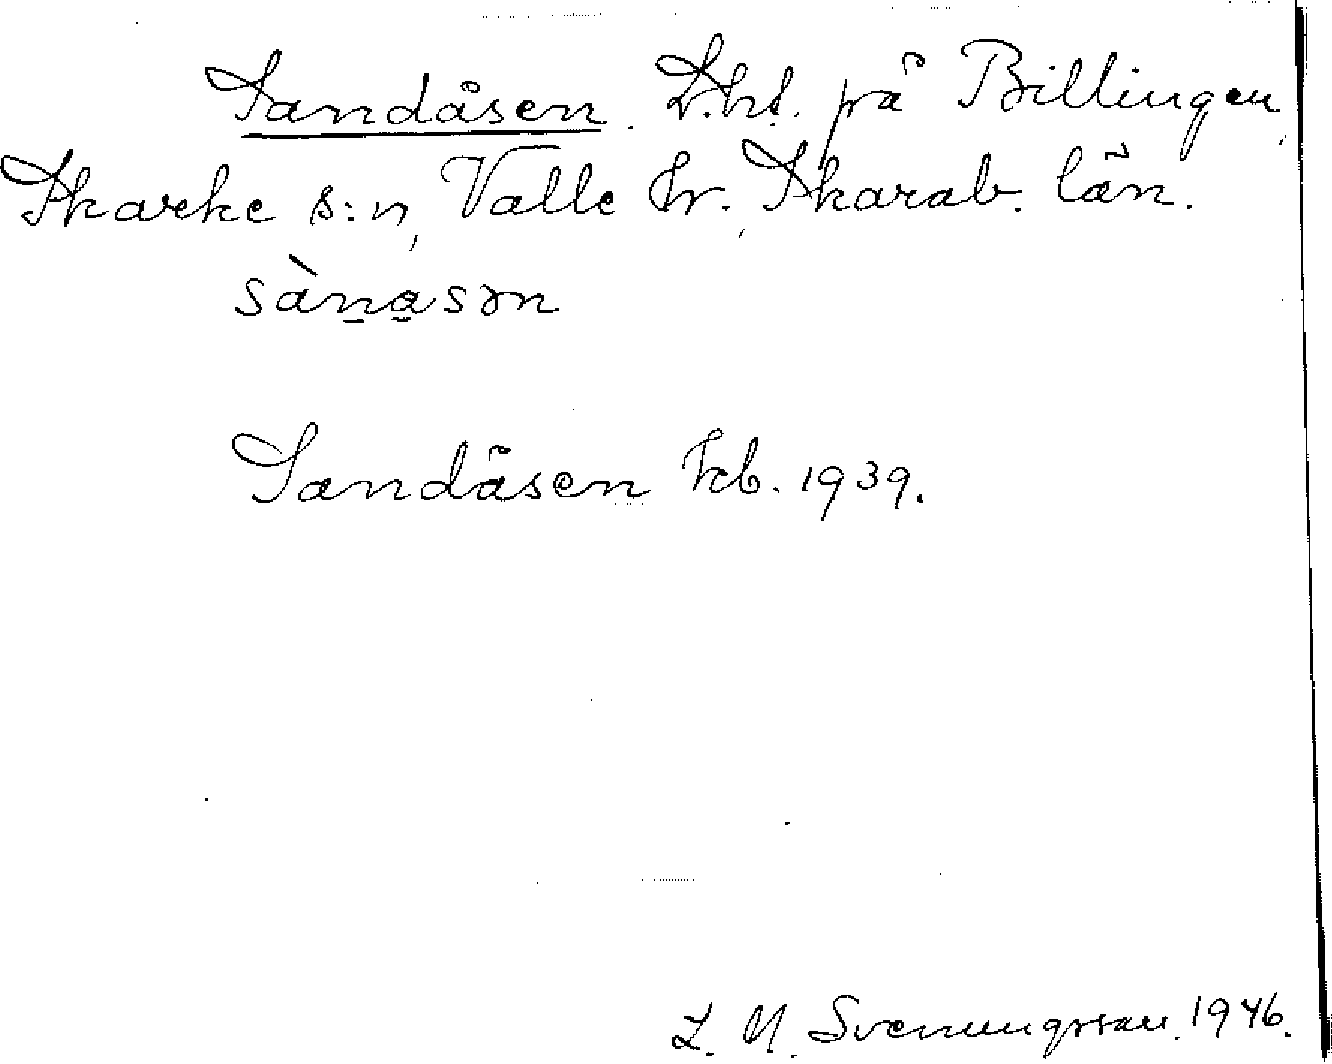 Sandåsen. L.ht. på Billingen,
Skarke s:n, Valle hr, Skarab. län.
sànasən
Sandåsen kb. 1939.
L. M. Svenungsson. 1946.